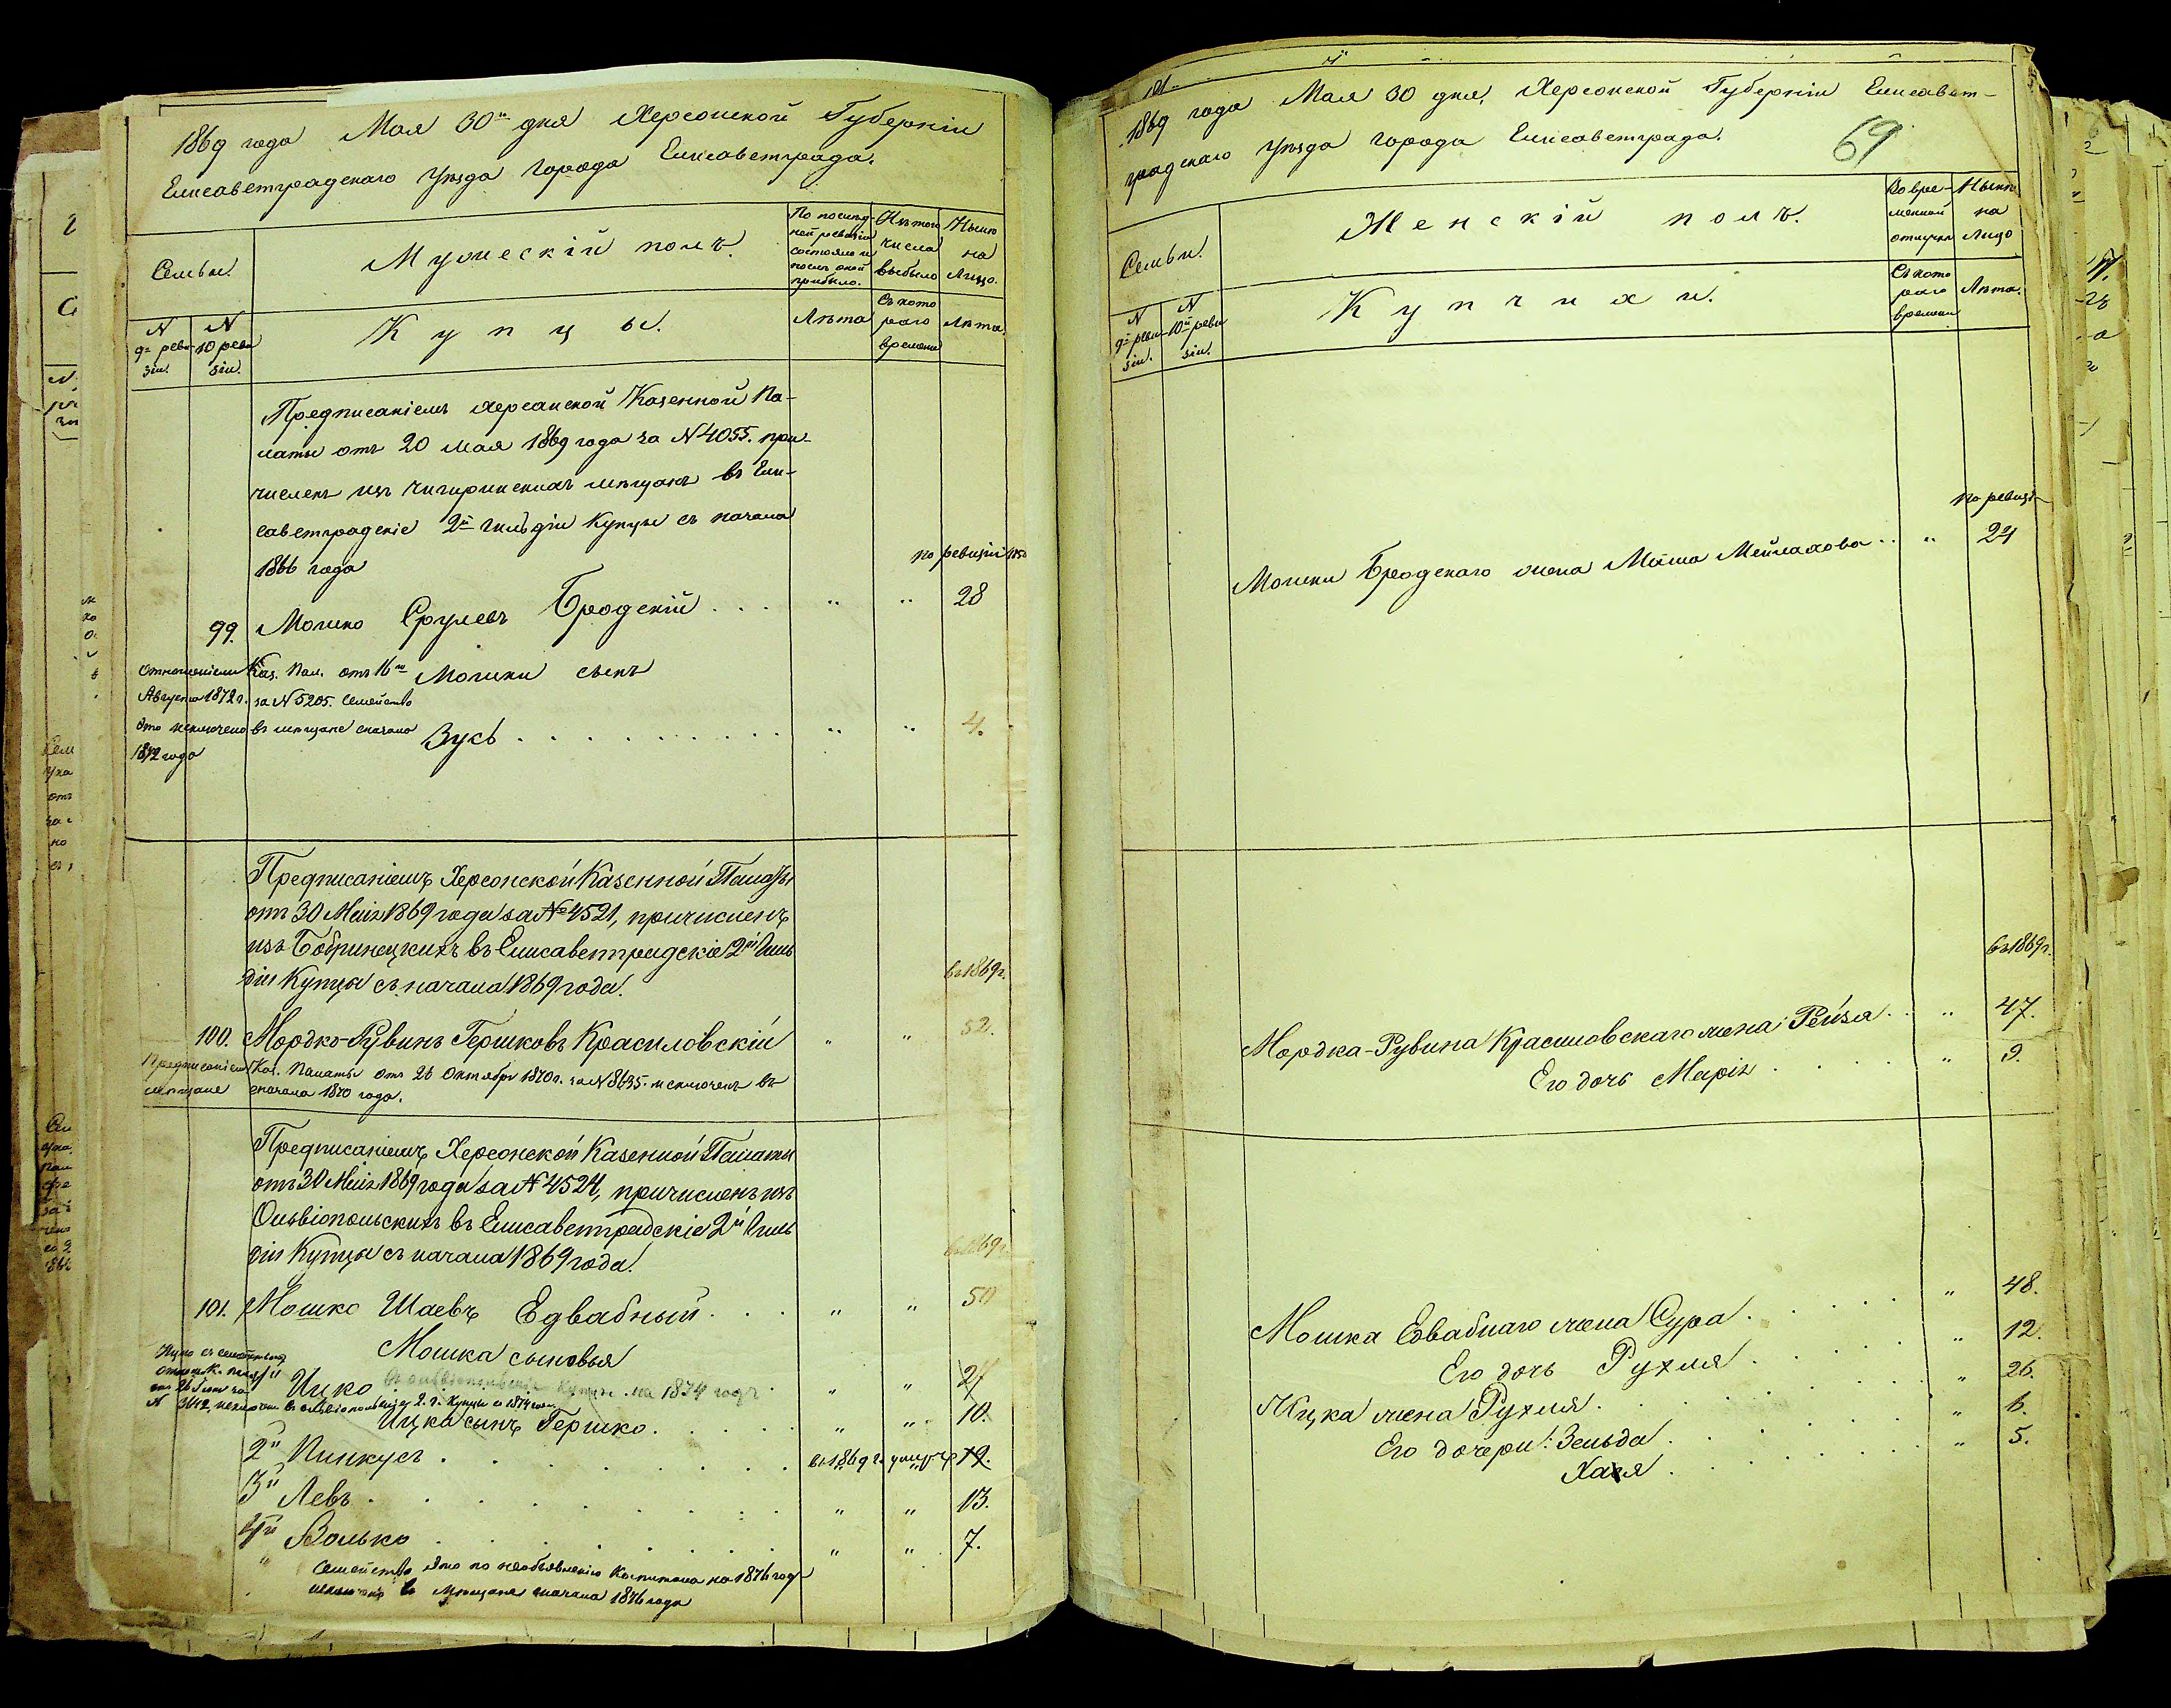 1869 года Мая 30го дня Херсонской Губерніи
Елисаветградскаго Уѣзда Города Елисаветграда.
Семьи.
Мужескій полъ.
По послѣд-
ней ревизіи
состояло и
послѣ оной
прибыло.
Изъ того
числа
выбыло
Нынѣ
на
лицо.
N
9й реви
зіи.
N
10 реви
зіи.
Купцы.
Лѣта
Съ кото
раго
времени
Лѣта.
Предписаніемъ Херсонской Казенной Па-
латы отъ 20 мая 1869 года за N 4055. при-
численъ изъ Чигиринскихъ мѣщанъ въ Ели-
саветградскіе 2й гильдіи Купцы съ начала
1866 года
по ревизіи
99. Мошко Срулевъ Бродскій . . . " " 28
Отношеніемъ Каз. Пал. отъ 16го
Августа 1872 г. за N 5205. Семейство
это исключено въ мѣщане сначала
1872 года
Мошки сынъ
Зусь . . . . . . . . . . " " 4.
Предписаніемъ Херсонской Казенной Палаты
отъ 30 Маія 1869 года за № 4521, причисленъ
изъ Бобринецкихъ въ Елисаветградскіе 2й Гиль
діи Купцы съ начала 1869 года.
въ 1869 г.
100. Мордко-Рувинъ Гершковъ Красиловскій " " 52.
Предписаніемъ Каз. Палаты отъ 26 Октября 1870 г. за N 8635. исключенъ въ
мѣщане сначала 1870 года.
Предписаніемъ Херсонской Казенной Палаты
отъ 30 Маія 1869 года за N 4524, причисленъ изъ
Ольвіопольскихъ въ Елисаветградскіе 2й Гиль
діи Купцы съ начала 1869 года.
въ 1869 г.
101. Мошко Шаевъ Едвабный . . . " " 50
Мошка сыновья
Ицко съ семействомъ
N 3412 исключенъ въ Ольвіопольскіе 2. г. Купцы съ 1874 года
Ицко Купцы на 1874 годъ . " " 24
Ицка сынъ Гершко . . . . . " " 10.
2й Пинкусъ . . . . . . . въ 1869 г. умеръ 19.
3й Левъ . . . . . . . . " " 13.
4й Волько . . . . . . . " " 7.
Семейство это по необъявленію Капитала на 1876 годъ
исключено въ Мѣщане сначала 1876 года
1869 года Мая 30 дня, Херсонской Губерніи Елисавет-
градскаго Уѣзда города Елисаветграда.
69
Семьи.
Женскій полъ.
Во вре-
менной
отлучкѣ
Нынѣ
на
Лицо
N
9й реви
зіи.
N
10й реви
зіи.
Купчихи.
Съ кото
раго
времени
Лѣта.
по ревизіи
Мошки Бродскаго жена Маша Мейлахова . . " 24
въ 1869 г.
Мордка-Рувина Красиловскаго жена: Рейза . . " 47.
Его дочь Марія . . . . " 9.
Мошка Едвабнаго жена Сура . . . . . " 48.
Его дочь Рухля . . . . " 12.
Ицка жена Рухля . . . . . . " 26.
Его дочери: Зельда . . . . . " 6.
Хая . . . . . . " 5.